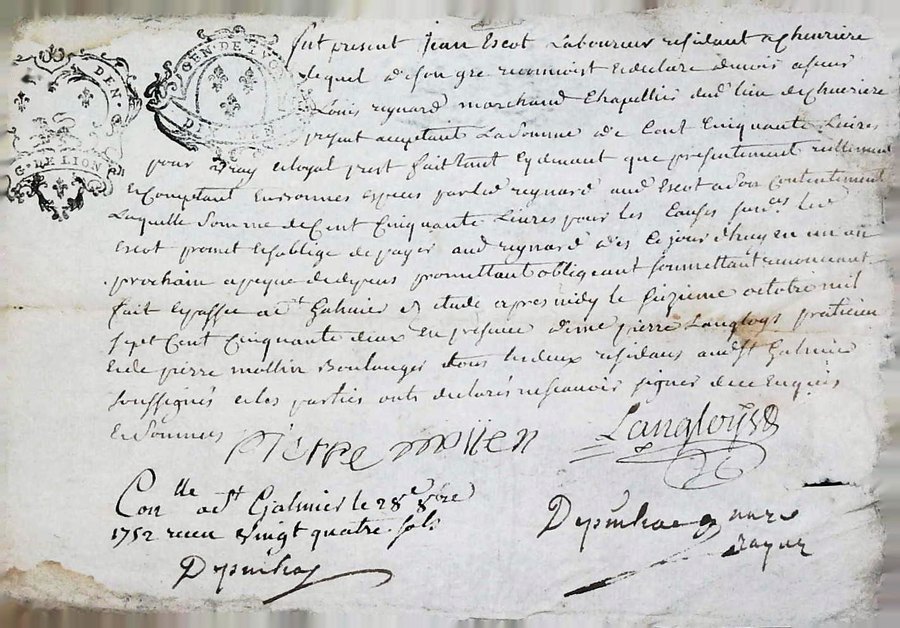 GEN. DE LYON
DEN.
G. DE LION
fut present Jean Escot Laboureur residant a Cheuriere
lequel de son gre reconnoist et declare deuoir a sieur
Louis reynard marchand Chapellier dud lieu de Cheuriere
present acceptant La somme de Cent Cinquante Liures
pour vray et loyal prest fait tant cydeuant que presentement reellement
et Comptant en bonnes especes par led reynard aud Escot a son Contentement
Laquelle somme de Cent Cinquante Liures pour les Causes surd. led
Escot promet et soblige de payer aud reynard dès Ce jour d'huy en un an
prochain a peyne de depens promettant obligeant soumettant renonceant
fait et passé a st Galmier et etude apres midy le seizieme octobre mil
sept Cent Cinquante deux en presence de me pierre Langloys praticien
et de pierre mollin Boulanger tous les deux residans aud st Galmier
soussignés et les parties ont declaré ne scauoir signer de ce Enquis
et sommés
pierre mollen
Langloys
Con lle a st Galmier le 28e 8bre
1752 receu vingt quatre sols